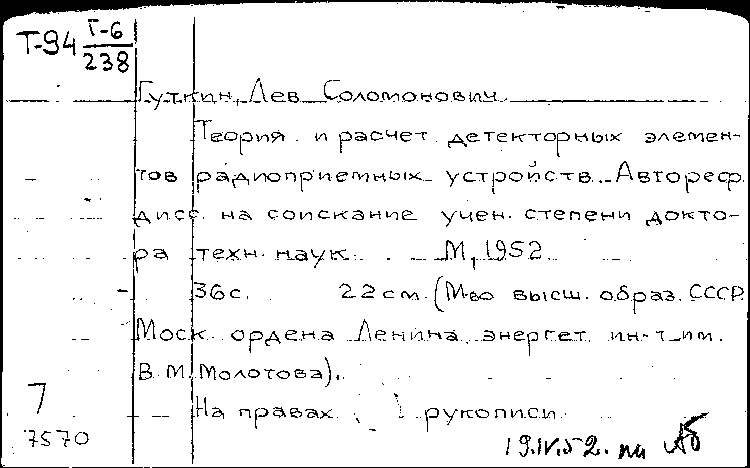 Т-94 Т-6
238
Гуткин, Лев Соломонович
Теория и расчет детекторных элемен-
тов радиоприемных устройств. Автореф.
дисс. на соискание учен. степени докто-
ра техн. наук. М, 1952
36с. 22см. (М-во высш. образ. СССР
Моск. ордена Ленина энергет. ин-т им.
В.М. Молотова).
На правах рукописи
7
7570
19.IV.52.